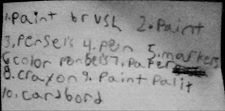 1. paint brush 2. Paint
3. Pensels 4. pen 5. markers
6. color pensels 7. Paper
8. crayon 9. Paint Palit
10. cardbord